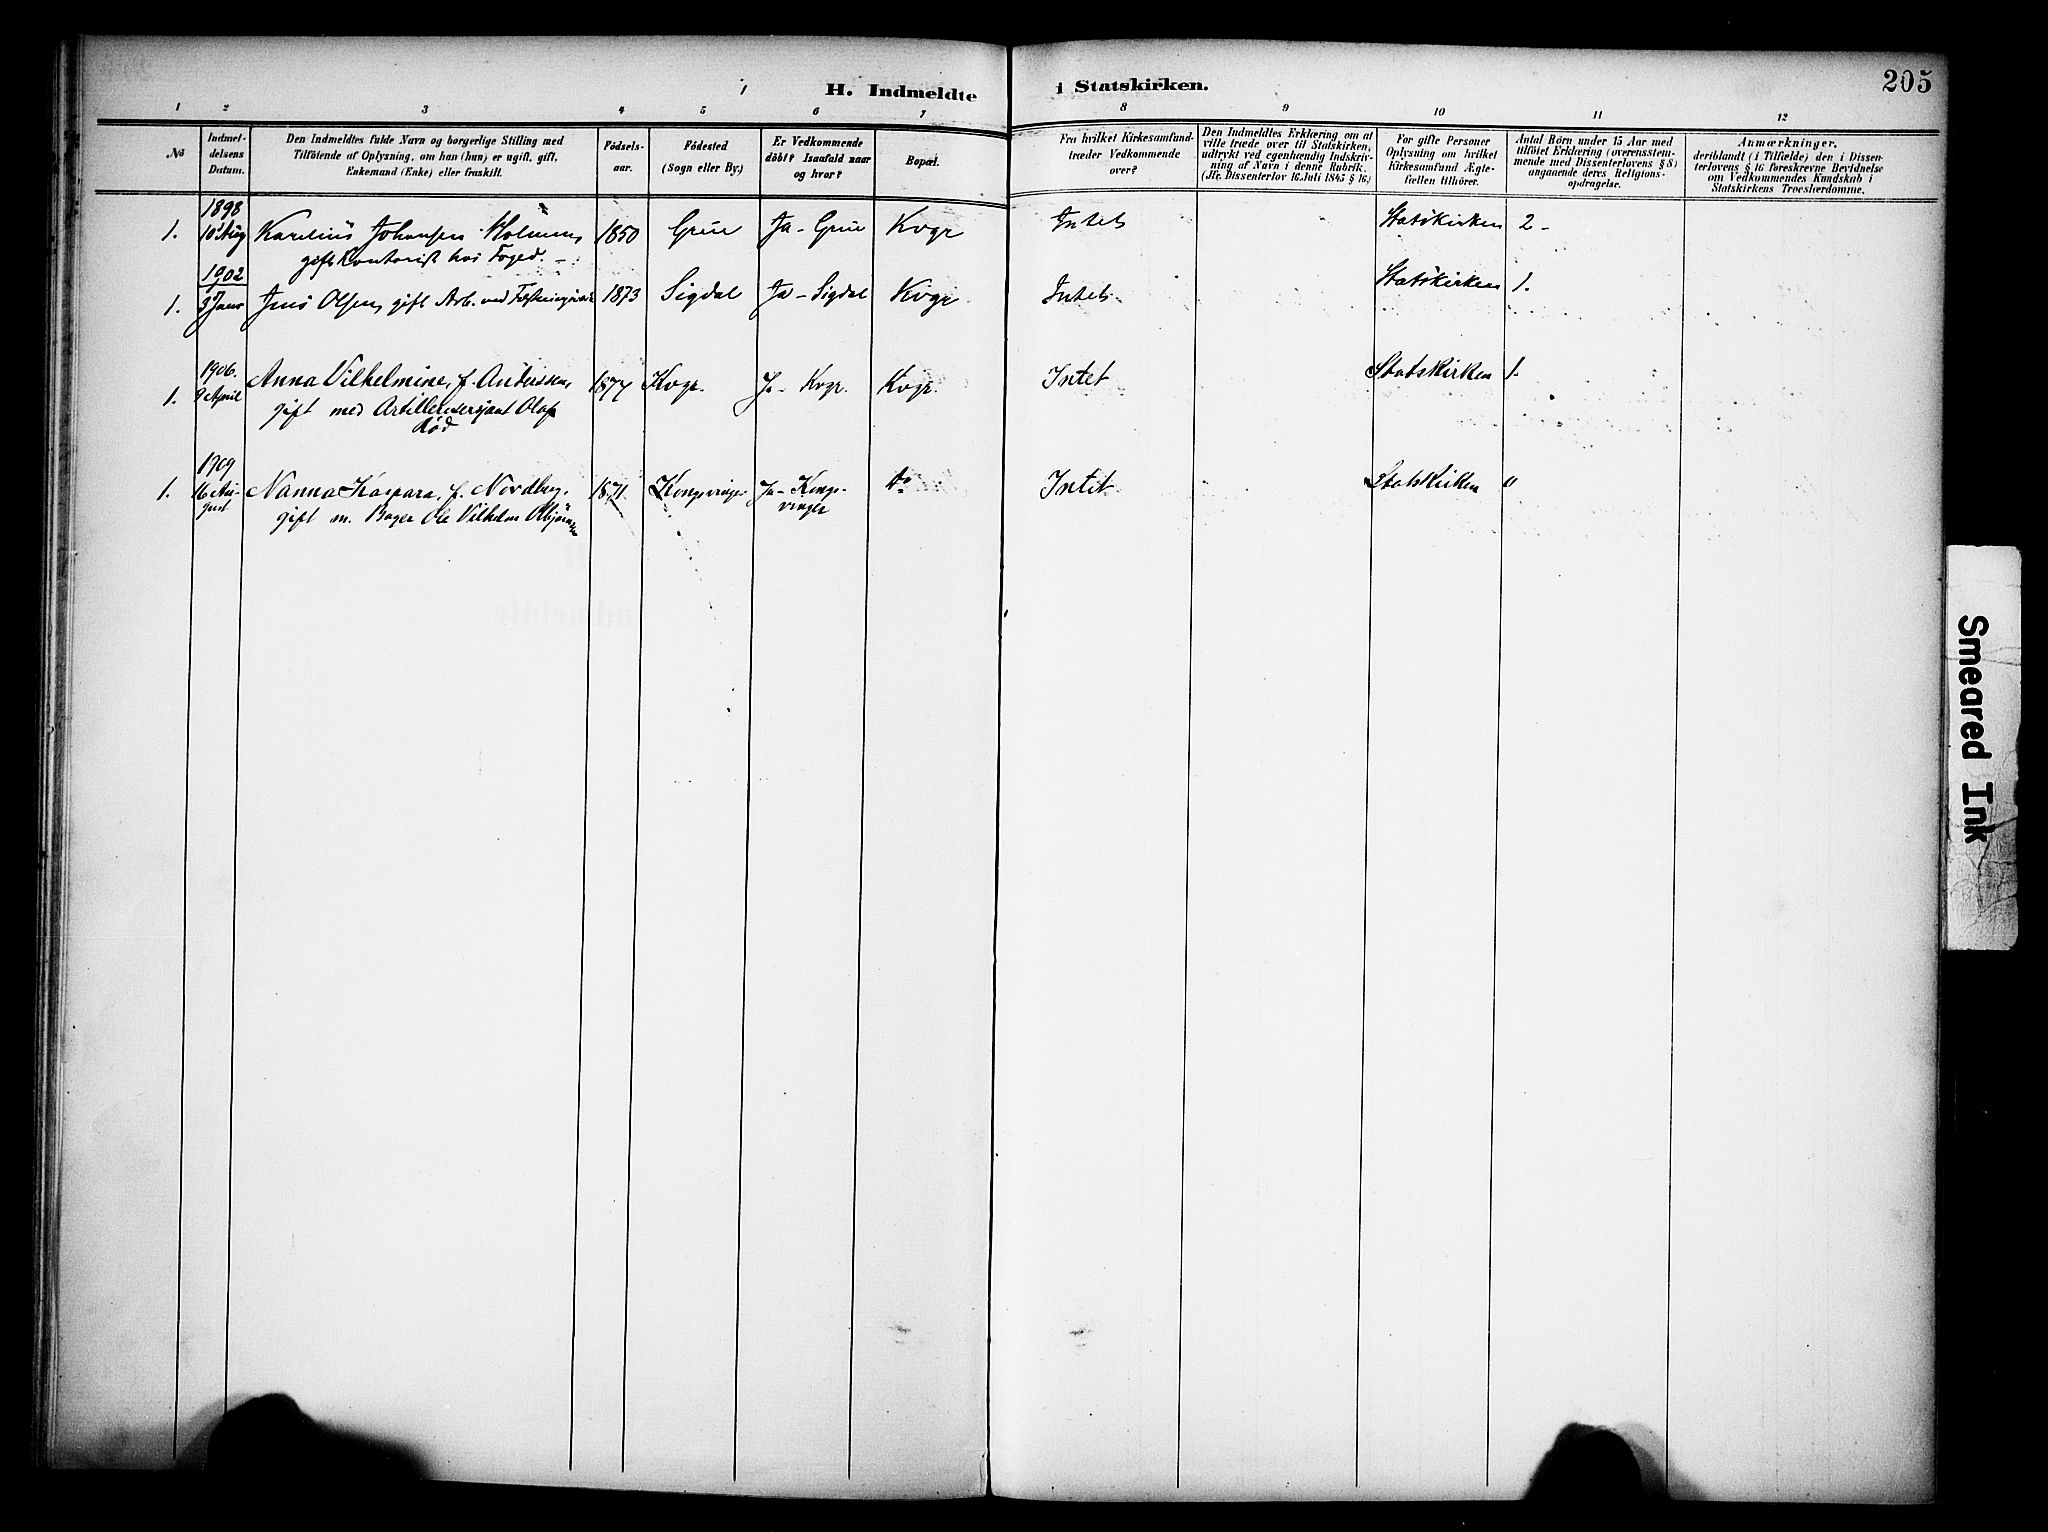 205
H. Indmeldte i Statskirken.
1 2 3 4 5 6 7 8 9 10 11 12
No
Indmel-
delsens
Datum.
Den Indmeldtes fulde Navn og borgerlige Stilling med
Tilföiende af Oplysning, om han (hun) er ugift, gift,
Enkemand (Enke) eller fraskilt.
Födsels-
aar.
Födested
(Sogn eller By.)
Er Vedkommende
döbt? Isaafald naar
og hvor?
Bopæl.
Fra hvilket Kirkesamfund-
træder Vedkommende
over?
Den Indmeldtes Erklæring om at
ville træde over til Statskirken,
udtrykt ved egenhændig Indskriv-
ning af Navn i denne Rubrik.
(Jfr. Dissenterlov 16 Juli 1845 § 16.)
For gifte Personer
Oplysning om hvilket
Kirkesamfund Ægte-
fællen tilhörer.
Antal Börn under 15 Aar med
tilföiet Erklæring (overensstem-
mende med Dissenterlovens § 8)
angaaende deres Religions-
opdragelse.
Anmærkninger,
deriblandt (i Tilfælde) den i Dissen-
terlovens § 16 foreskrevne Bevidnelse
om Vedkommendes Kundskab i
Statskirkens Troeslærdomme.
1898
1. 10 Aug Karelius Johansen Holmen, 1850 Grue Ja - Grue Kvgr Intet Statskirken 2 -
gift Kontorist hos Foged. -
1902
1. 3 Janr Jens Olsen, gift Arb. ved 1873 Sigdal Ja - Sigdal Kvgr Intet. Statskirken 1.
1906.
1. 9 April Anna Vilhelmine, f. Anderssen, 1877 Kvgr. Ja - Kvgr. Kvgr. Intet Statskirken 1.
gift med Artillerisersjant Olaf
Rød
1909
1. 16 Au- Nanna Kaspara, f. Nordberg, 1871. Kongsvinger Ja - Kongs- do Intet Statskirken "
gust gift m. Bager Ole Vilhelm vinger
Smeared Ink